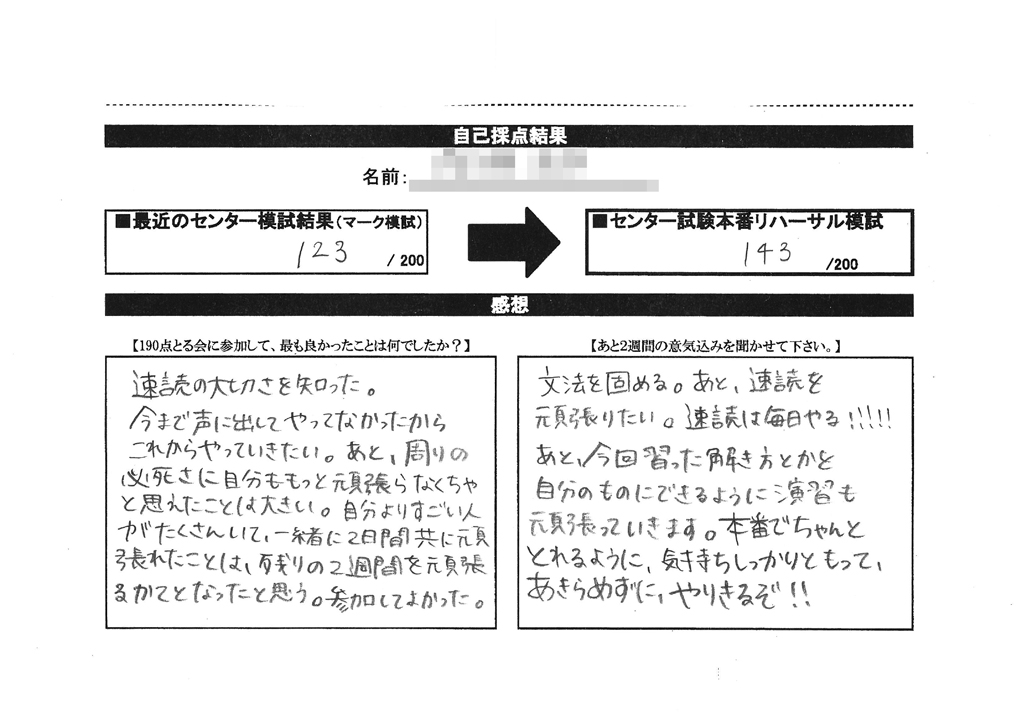 自己採点結果
名前:
■最近のセンター模試結果(マーク模試)
123
/ 200
■センター試験本番リハーサル模試
143
/200
感想
【190点とる会に参加して、最も良かったことは何でしたか？】
速読の大切さを知った。
今まで声に出してやってなかったから
これからやっていきたい。あと、周りの
必死さに自分ももっと頑張らなくちゃ
と思えたことは大きい。自分よりすごい人
がたくさんいて、一緒に2日間共に頑
張れたことは、残りの2週間を頑張
るかてとなったと思う。参加してよかった。
【あと2週間の意気込みを聞かせて下さい。】
文法を固める。あと、速読を
頑張りたい。速読は毎日やる!!!!!
あと、今回習った解き方とかを
自分のものにできるように演習も
頑張っていきます。本番でちゃんと
とれるように、気持ちしっかりともって、
あきらめずに、やりきるぞ!!